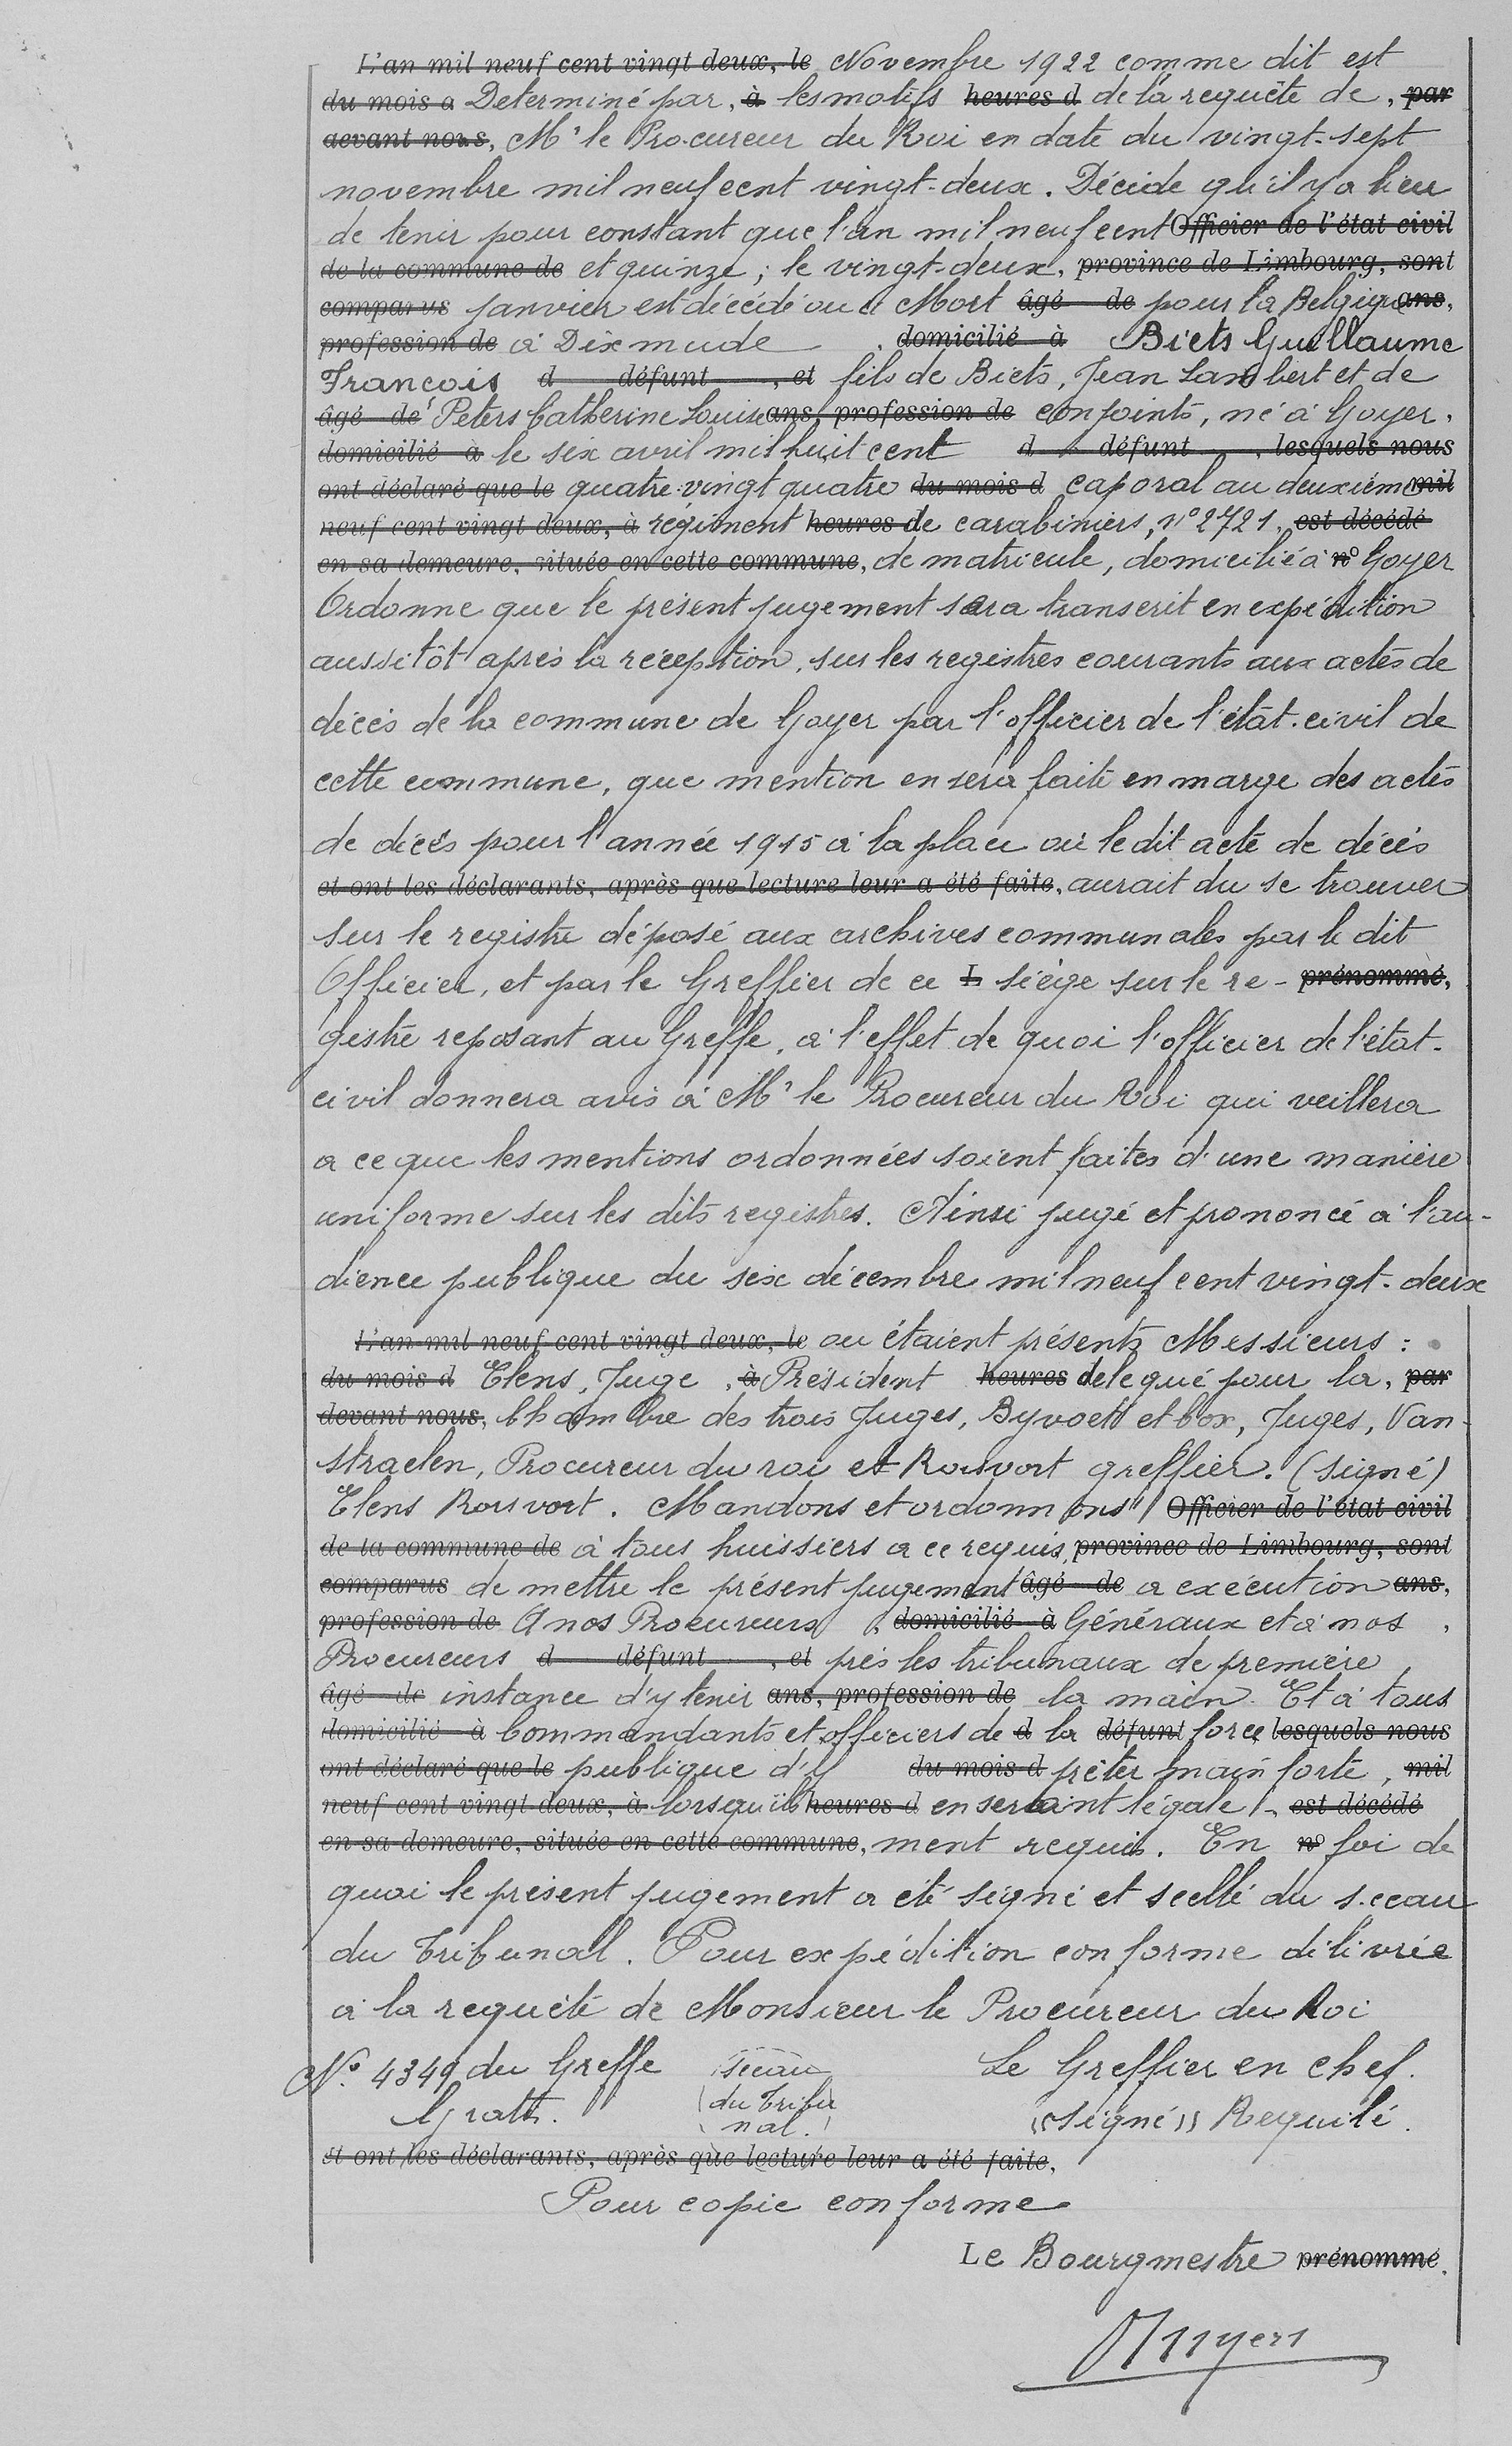 L'an mil neuf cent vingt deux, le Novembre 1922 comme dit est
du mois d Determiné par, à les motifs heures d de la requête de, par
devant nous, Mr le Procureur du Roi en date du vingt-sept
novembre mil neuf cent vingt-deux. Décide qu'il y a lieu
de tenir pour constant que l'an mil neuf cent Officier de l'état civil
de la commune de et quinze; le vingt-deux, province de Limbourg, sont
comparus janvier est décédé ou à Mort âgé de pour la Belgique ans,
profession de à Dixmude, domicilié à Biets Guillaume
François d défunt, et fils de Biets, Jean Lambert et de
âgé de Peters Catherine Louise ans, profession de conjoints, né à Goyer,
domicilié à le six avril mil huit cent d défunt, lesquels nous
ont déclaré que le quatre-vingt quatre du mois d caporal au deuxième mil
neuf cent vingt deux, à régiment heures de carabiniers, n° 2721, est décédé
en sa demeure, située en cette commune, de matricule, domicilié à n° Goyer
Ordonne que le présent jugement sera transcrit en expédition
aussitôt après la réception, sur les registres courants aux actes de
décès de la commune de Goyer par l'officier de l'état-civil de
cette commune, que mention en sera faite en marge des actes
de décès pour l'année 1915 à la place où le dit acte de décès
et ont les déclarants, après que lecture leur a été faite, aurait du se trouver
sur le registre déposé aux archives communales par le dit
Officier, et par le Greffier de ce L siège sur le re- prénommé,
gistre reposant au Greffe, à l'effet de quoi l'officier de l'état-
civil donnera avis à Mr le Procureur du Roi qui veillera
a ce que les mentions ordonnées soient faites d'une manière
uniforme sur les dits registres. Ainsi jugé et prononcé à l'au-
dience publique du six décembre mil neuf cent vingt-deux
L'an mil neuf cent vingt deux, le ou étaient présents Messieurs:
du mois d Elens, Juge, à Président heures delegué pour la, par
devant nous, Chambre des trois Juges, Byvoet et Cox, Juges, Van-
straelen, Procureur du roi et Rouvort greffier. (signé)
Elens Rouvort. Mandons et ordonnons" Officier de l'état civil
de la commune de à tous huissiers a ce requis, province de Limbourg, sont
comparus de mettre le présent jugement âgé de a exécution ans,
profession de A nos Procureurs, domicilié à Généraux et à nos,
Procureurs d défunt, et près les tribunaux de première
âgé de instance d'y tenir ans, profession de la main. Et à tous
domicilié à Commandants et officiers de d la défunt force lesquels nous
ont déclaré que le publique d'y du mois d prêter main forte, mil
neuf cent vingt deux, à lorsqu'ils heures d en seraint légale-, est décédé
en sa demeure, située en cette commune, ment requis. En n° foi de
quoi le présent jugement a été signé et scellé du sceau
du Tribunal. Pour expédition conforme délivrée
à la requête de Monsieur le Procureur du Roi
N° 4349 du Greffe sceau Le Greffier en chef.
Gratis. du Tribu (signé) Requilé.
nal.
et ont les déclarants, après que lecture leur a été faite,
Pour copie conforme
Le Bourgmestre prénommé.